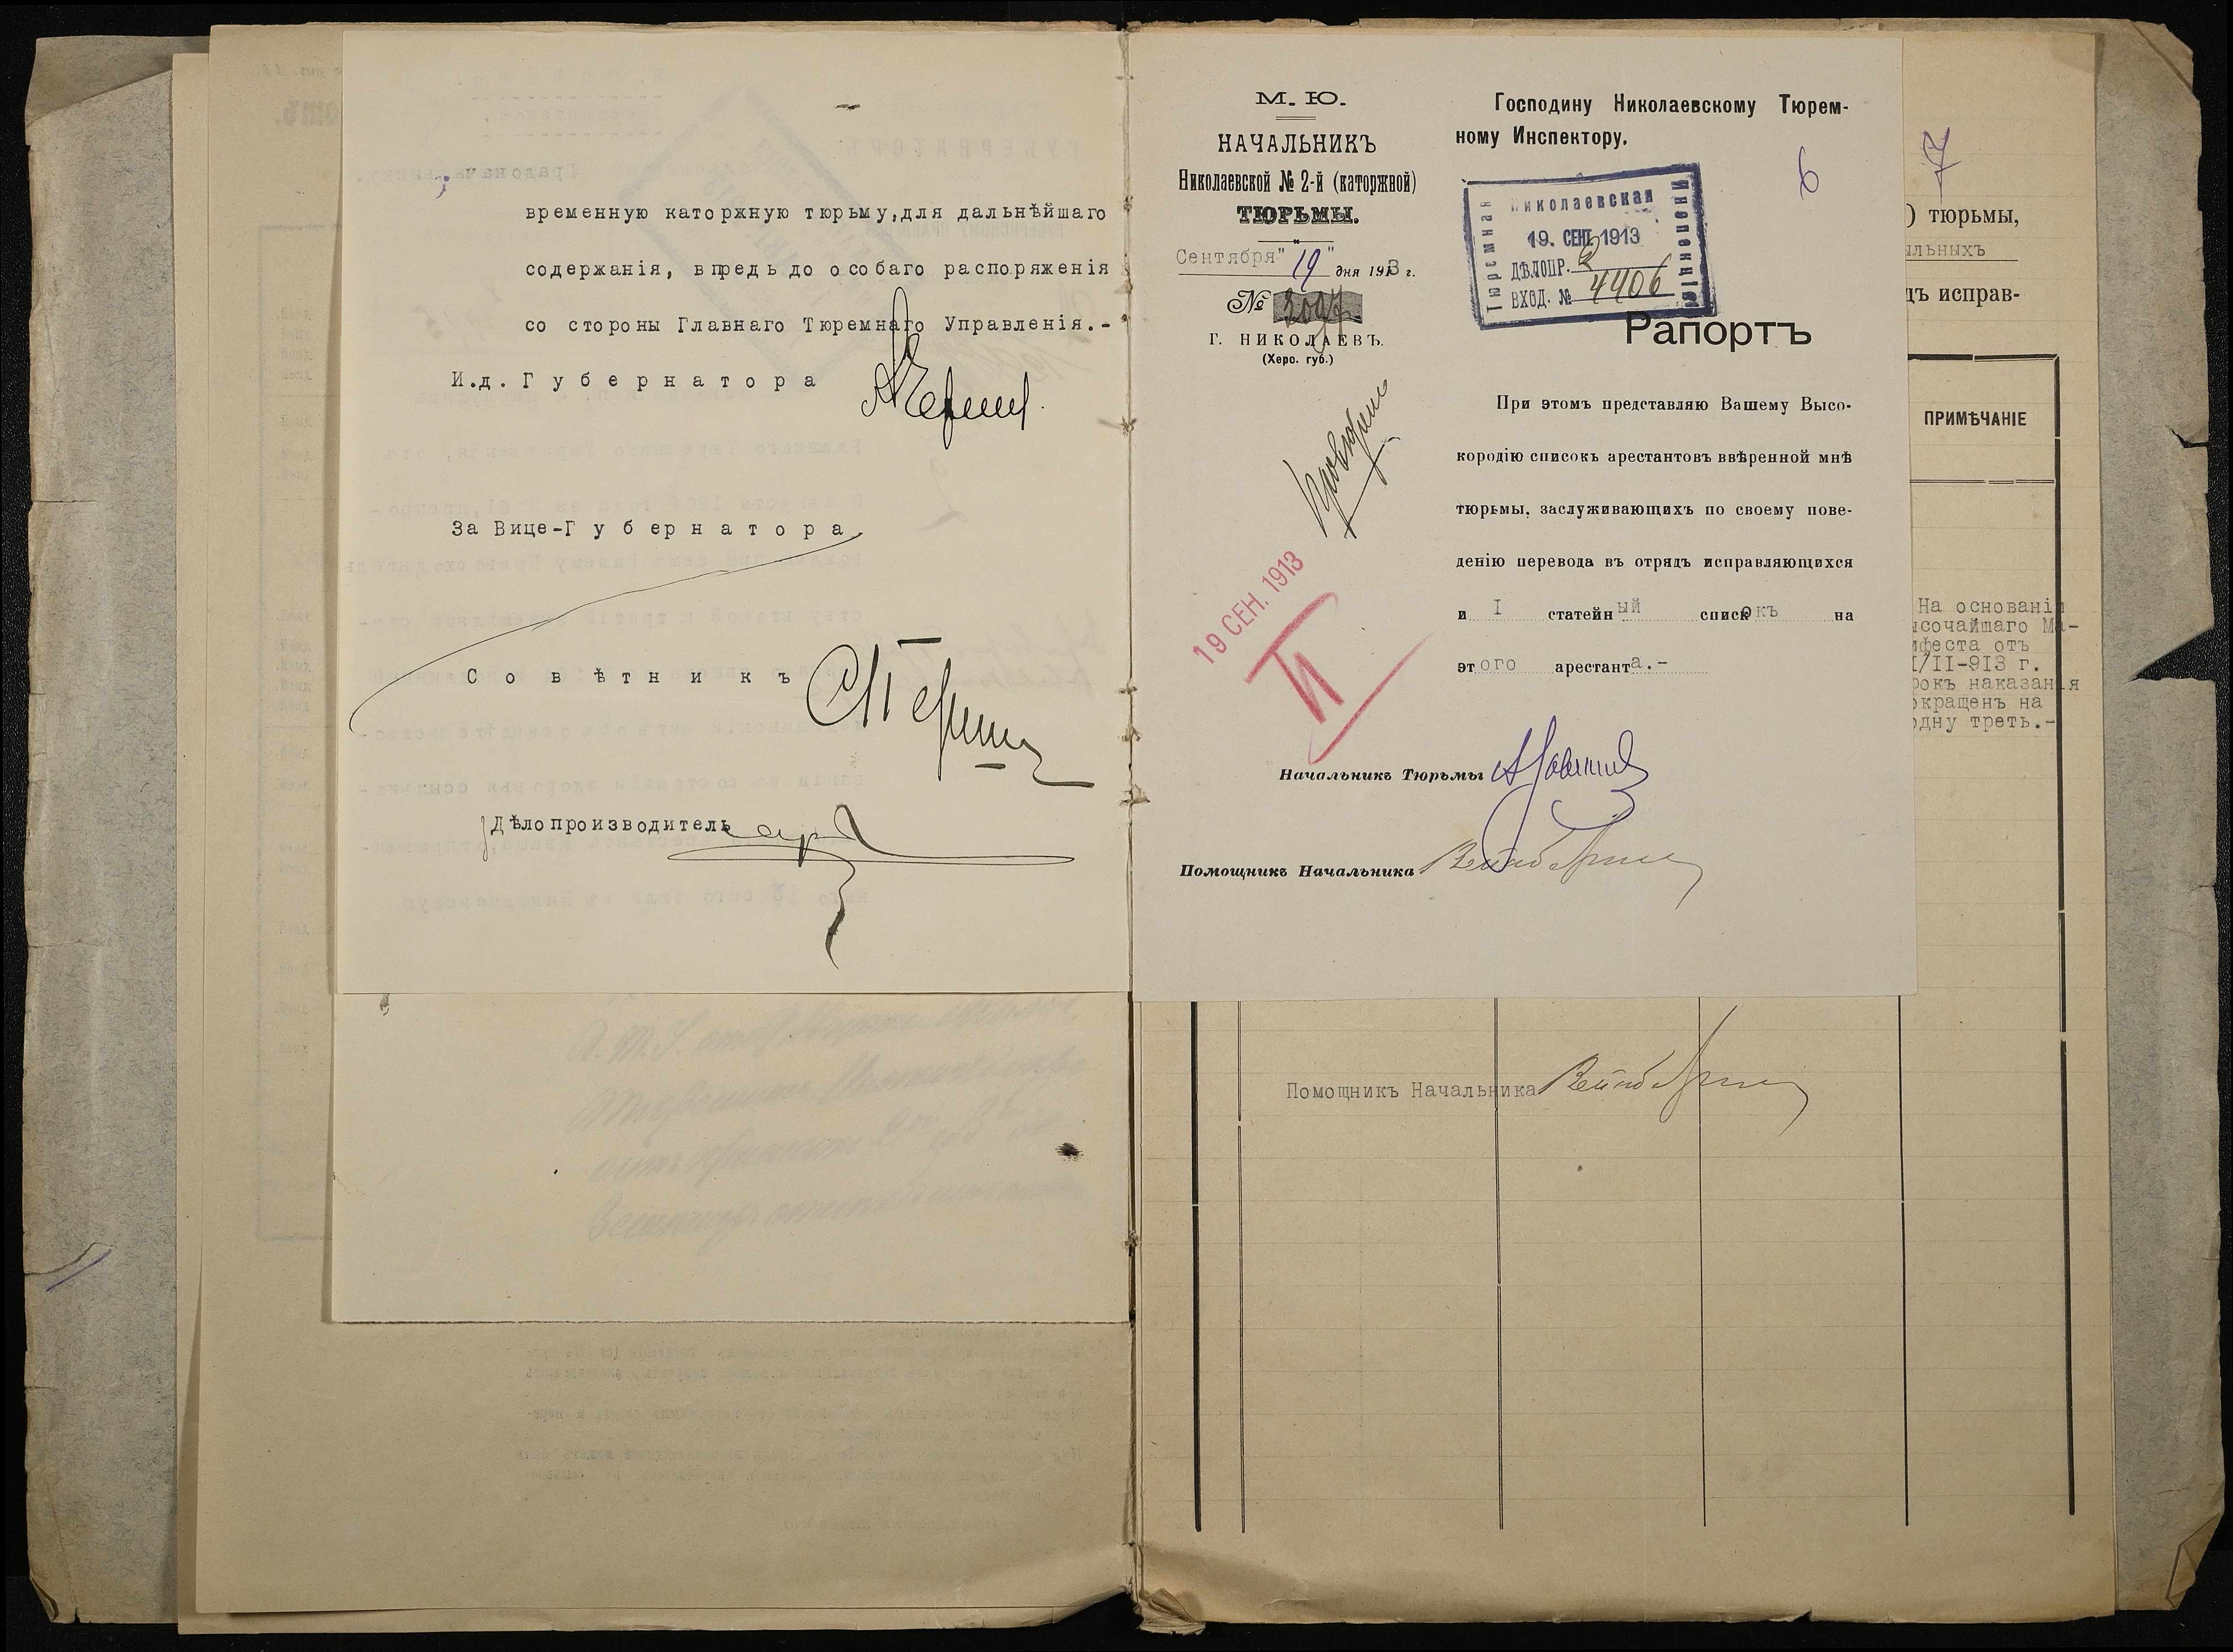 временную каторжную тюрьму, для дальнѣйшаго
содержанія, впредь до особаго распоряженія
со стороны Главнаго Тюремнаго Управленія.-
И.д. Губернатора
За Вице-Губернатора
Совѣтникъ
Дѣлопроизводитель
М. Ю.
НАЧАЛЬНИКЪ
Николаевской № 2-й (каторжной)
ТЮРЬМЫ.
Сентября "19" дня 1913 г.
№ 2097
Г. НИКОЛАЕВЪ.
(Херс. губ.)
19 СЕН. 1913
Господину Николаевскому Тюрем-
ному Инспектору.
6
Николаевская
Тюремная
Инспекція
19. СЕНТ 1913
ДѢЛОПР. 2
ВХОД. № 4406
Рапортъ
При этомъ представляю Вашему Высо-
кородію списокъ арестантовъ ввѣренной мнѣ
тюрьмы, заслуживающихъ по своему пове-
денію перевода въ отрядъ исправляющихся
и I статейный списокъ на
этого арестанта.-
Начальникъ Тюрьмы
Помощникъ Начальника
7
) тюрьмы,
ыльныхъ
дъ исправ-
ПРИМѢЧАНІЕ
На основаніи
ысочайшаго Ма-
ифеста отъ
I/II-913 г.
рокъ наказанія
окращенъ на
одну треть.-
Помощникъ Начальника